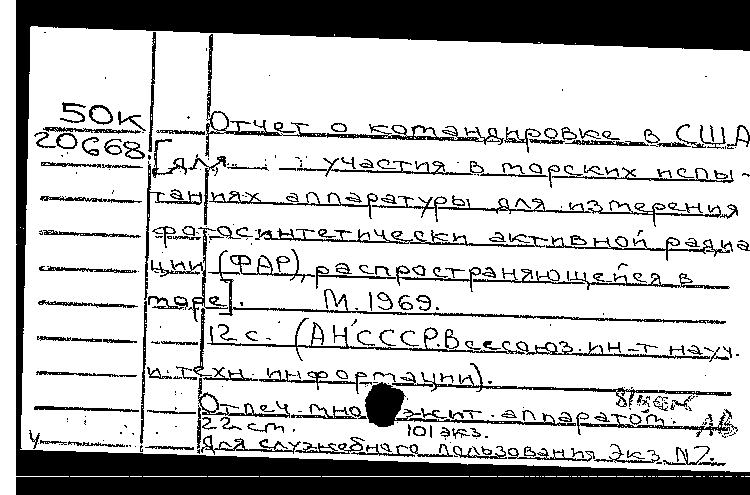 50к Отчет о командировке в США
20668 [для участия в морских испы-
таниях аппаратуры для измерения
фотосинтетически активной радиа
ции (ФАР), распространяющейся в
море]. М. 1969.
12 с. (АН СССР. Всесоюз. ин-т науч.
и техн. информации).
Отпеч. множит. аппаратом.
22 см. 101 экз.
Для служебного пользования Экз. N7.